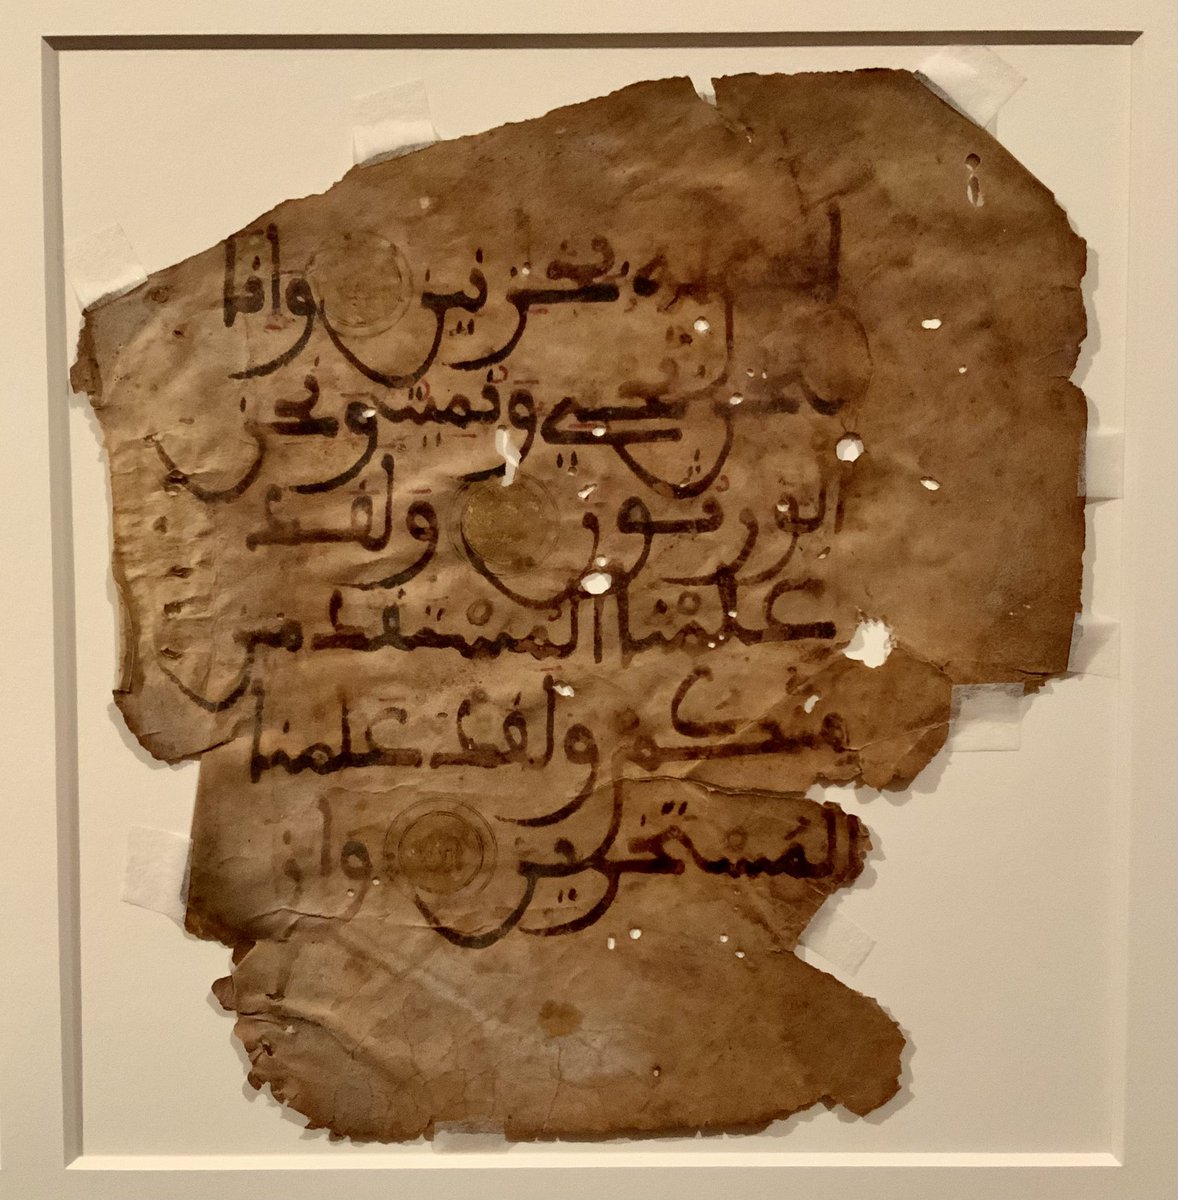 له بخزنين وانا
لنحن نحي ونميت ونحن
الورثون ولقد
علمنا المستقدمين
منكم ولقد علمنا
المستخرين وان